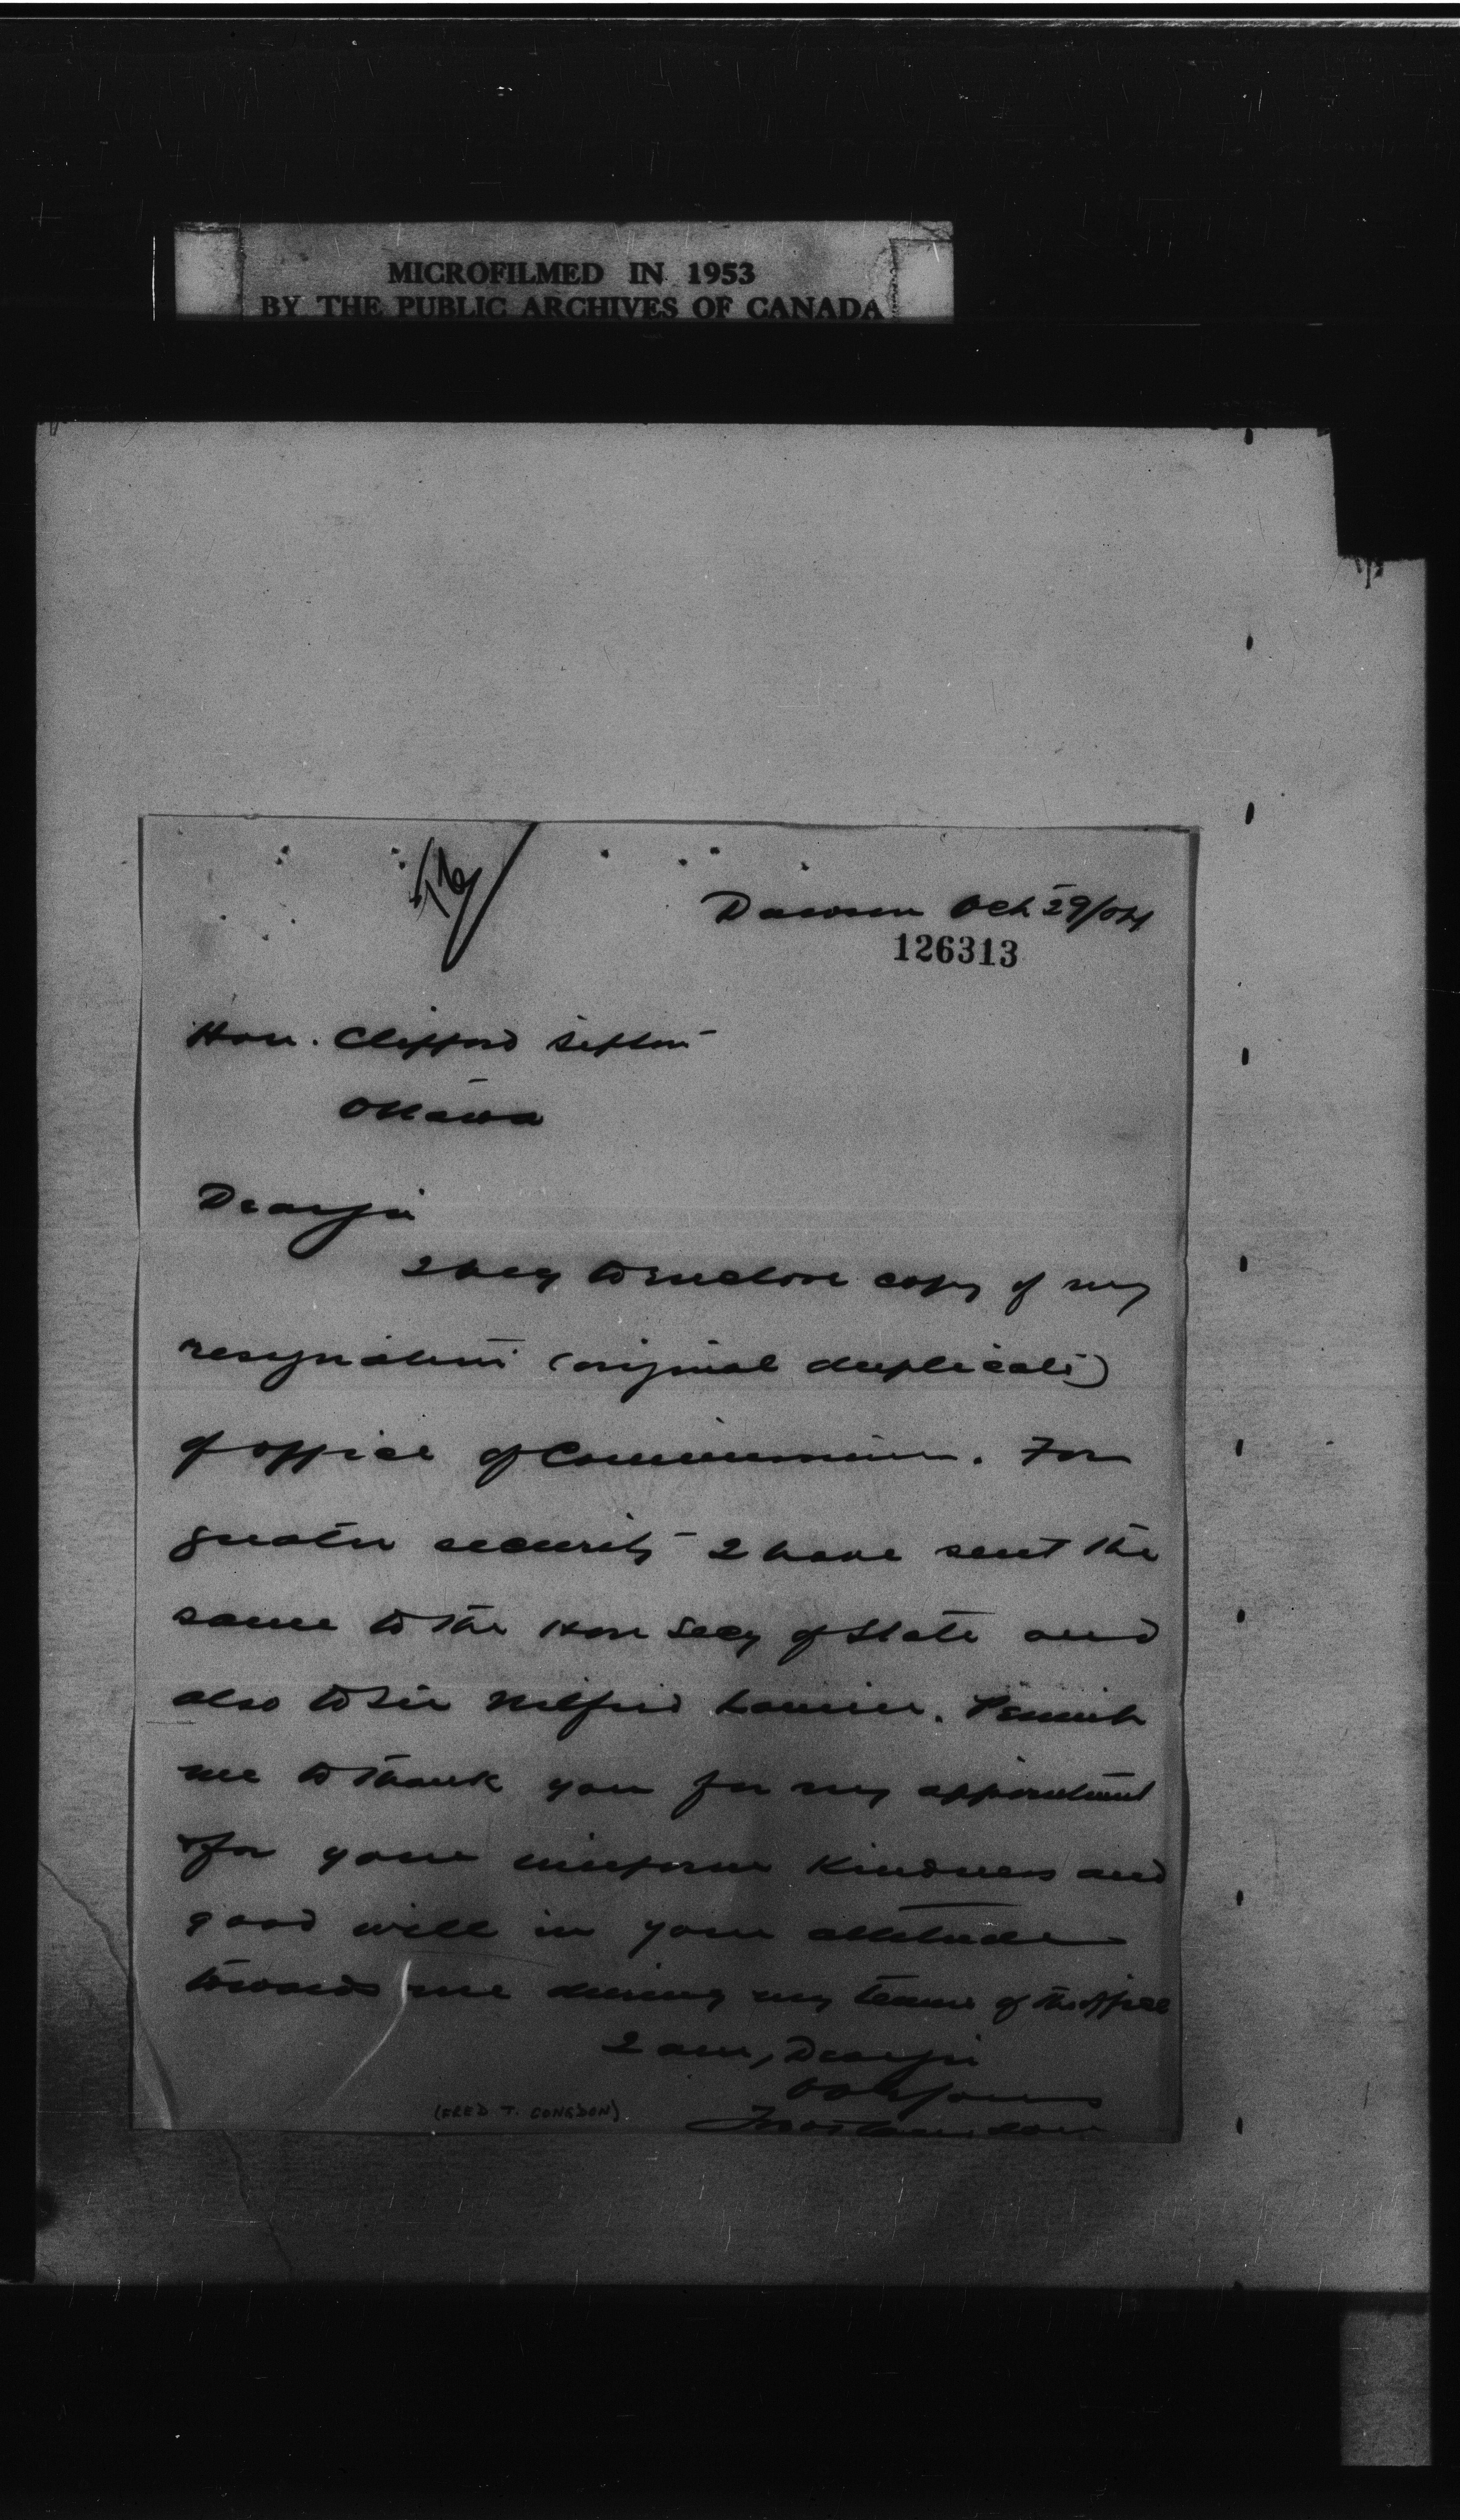 MICROFILMED IN 1953
BY THE PUBLIC ARCHIVES OF CANADA
Dawson Oct 29/04
126313
Hon. Clifford Sifton
Ottawa
Dear Sir
I beg to enclose copy of my
resignation (original duplicate)
of office of Commissioner. For
greater security I have sent the
same to the Hon Secy of State and
also to Sir Wilfrid Laurier. Permit
me to thank you for my appointment
& for your uniform kindness and
good will in your attitude
towards me during my tenure of the office
I am, Dear Sir
Yours
(FRED T. CONGDON)